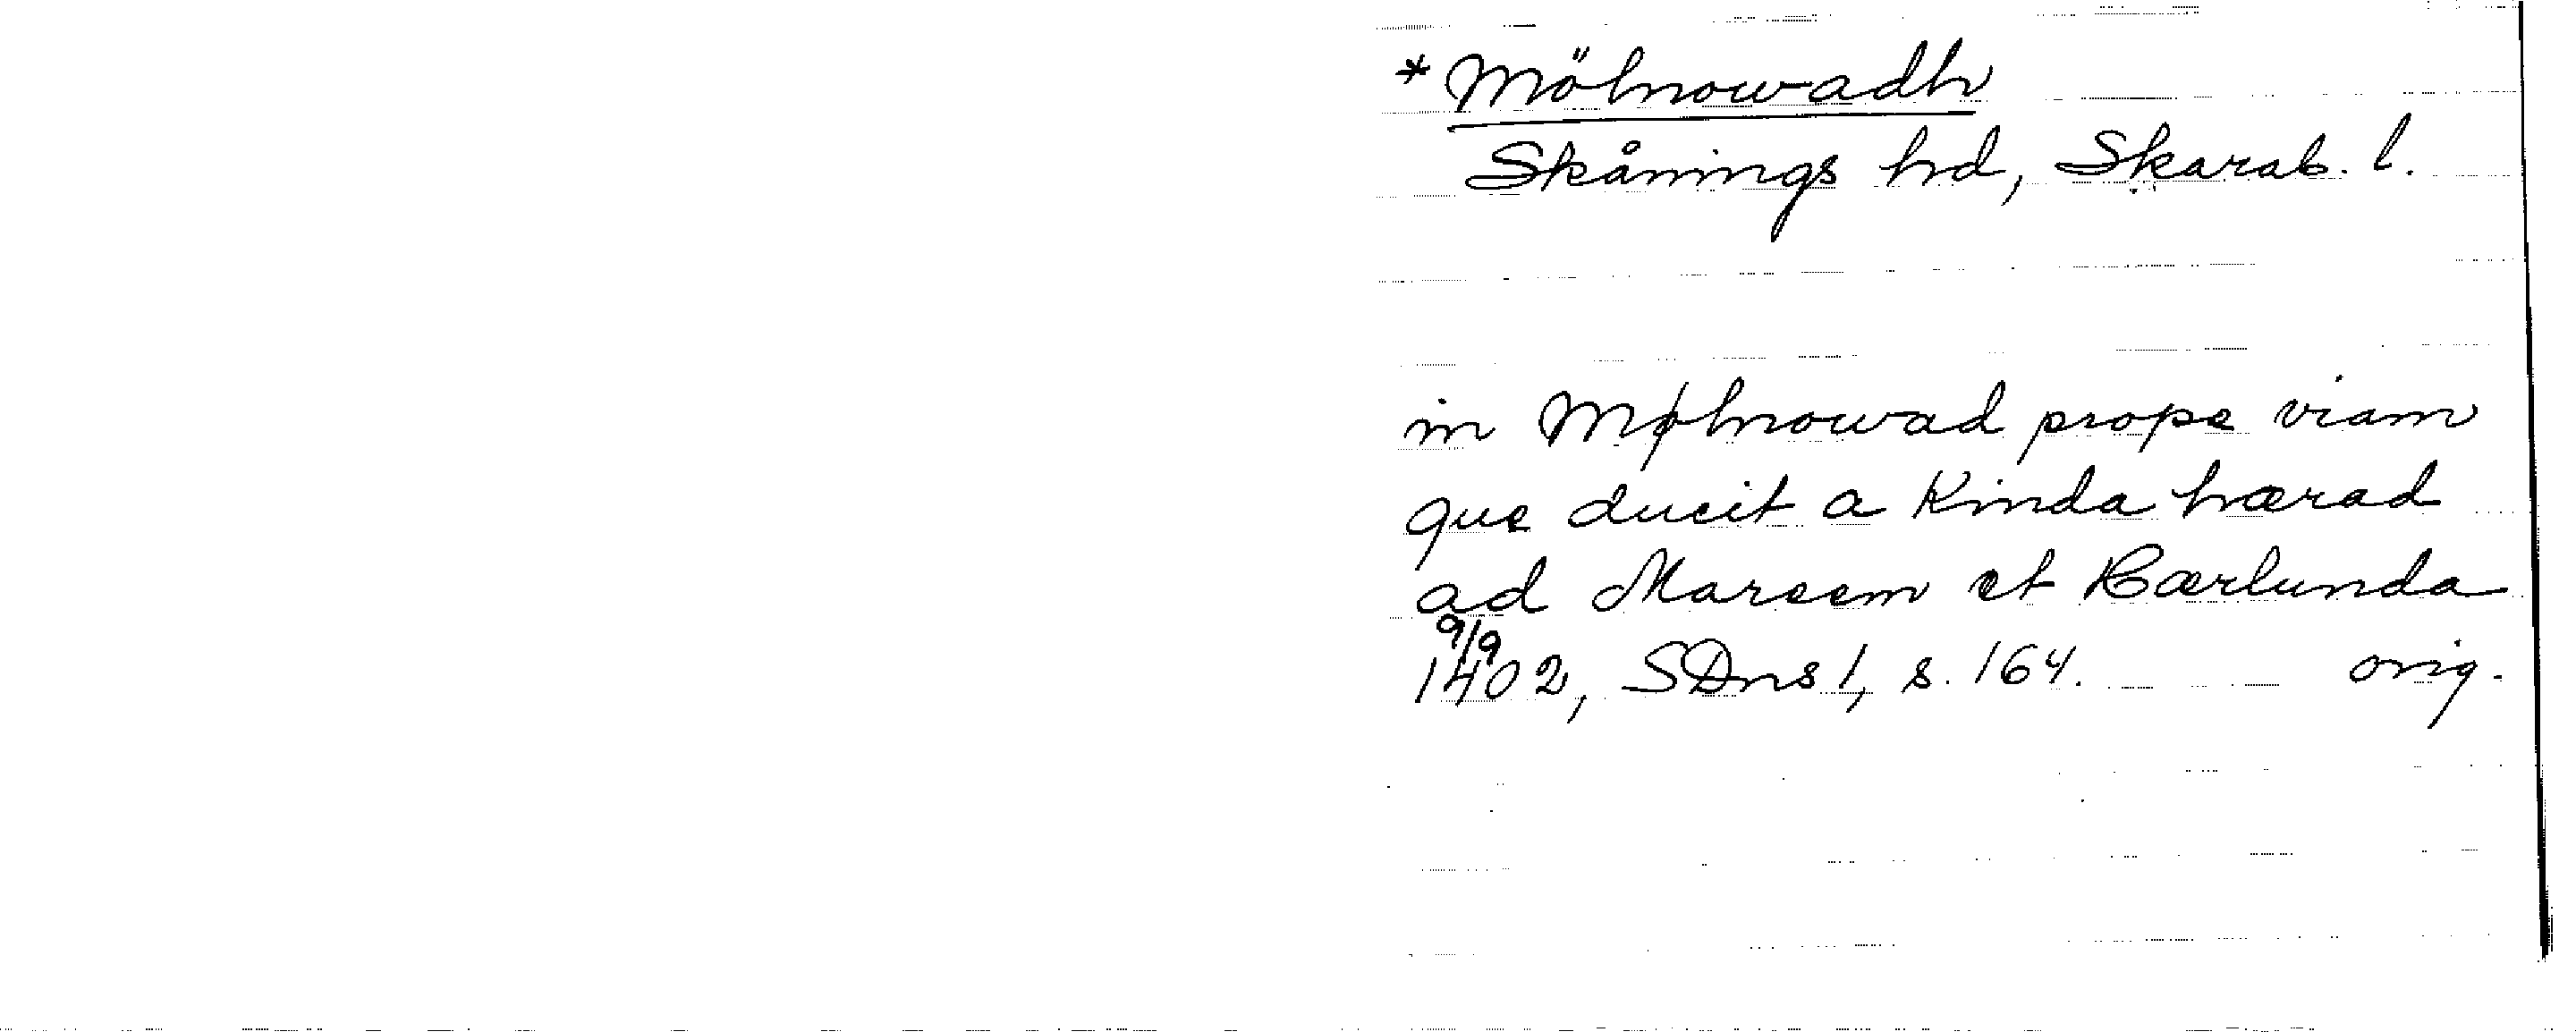 *Mölnowadh
Skånings hd, Skarab. l.
in Mølnowad prope viam
que ducit a Kinda hærad
ad Mareem et Bærlunda
9/9
1402, SDns 1, s. 164. orig.